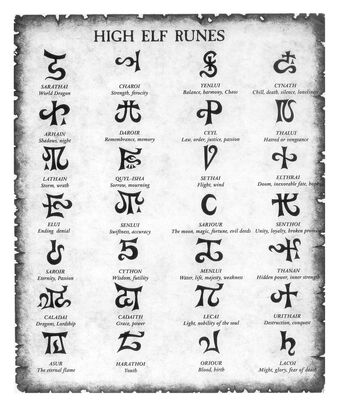 HIGH ELF RUNES
SARATHAI CHAROI YENLUI CYNATH
World Dragon Strength, ferocity Balance, harmony, Chaos Chill, death, silence, loneliness
ARHAIN DAROIR CEYL THALUI
Shadows, night Remembrance, memory Law, order, justice, passion Hatred or vengeance
LATHAIN QUYL-ISHA SETHAI ELTHRAI
Storm, wrath Sorrow, mourning Flight, wind Doom, inexorable fate, hope
ELUI SENLUI SARIOUR SENTHOI
Ending, denial Swiftness, accuracy The moon, magic, fortune, evil deeds Unity, loyalty, broken promises
SAROIR CYTHON MENLUI THANAN
Eternity, Passion Wisdom, futility Water, life, majesty, weakness Hidden power, inner strength
CALADAI CADAITH LECAI URITHAIR
Dragons, Lordship Grace, power Light, nobility of the soul Destruction, conquest
ASUR HARATHOI ORIOUR LACOI
The eternal flame Youth Blood, birth Might, glory, fear of death